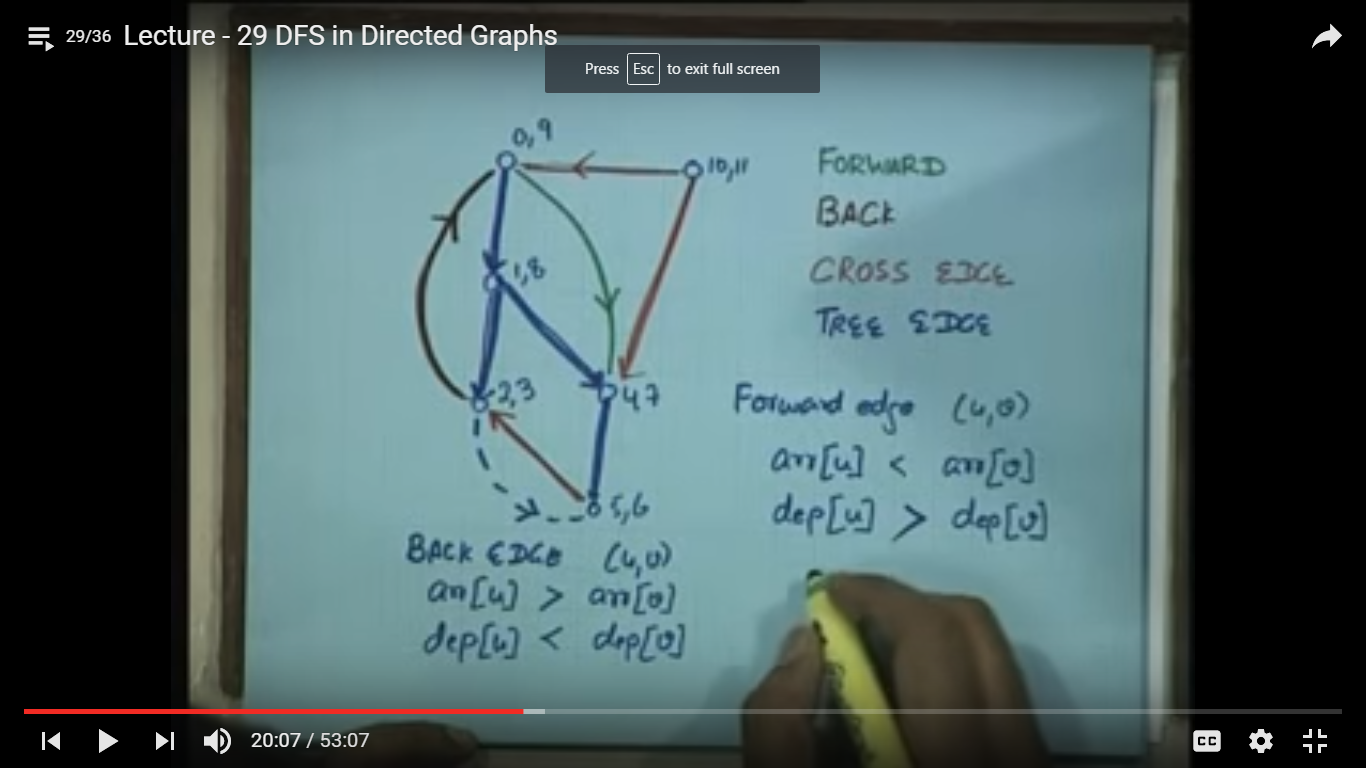 29/36 Lecture - 29 DFS in Directed Graphs
Press Esc to exit full screen
0,9
10,11
1,8
2,3
4,7
5,6
FORWARD
BACK
CROSS EDGE
TREE EDGE
Forward edge (u,v)
arr[u] < arr[v]
dep[u] > dep[v]
BACK EDGE (u,v)
arr[u] > arr[v]
dep[u] < dep[v]
20:07 / 53:07
CC